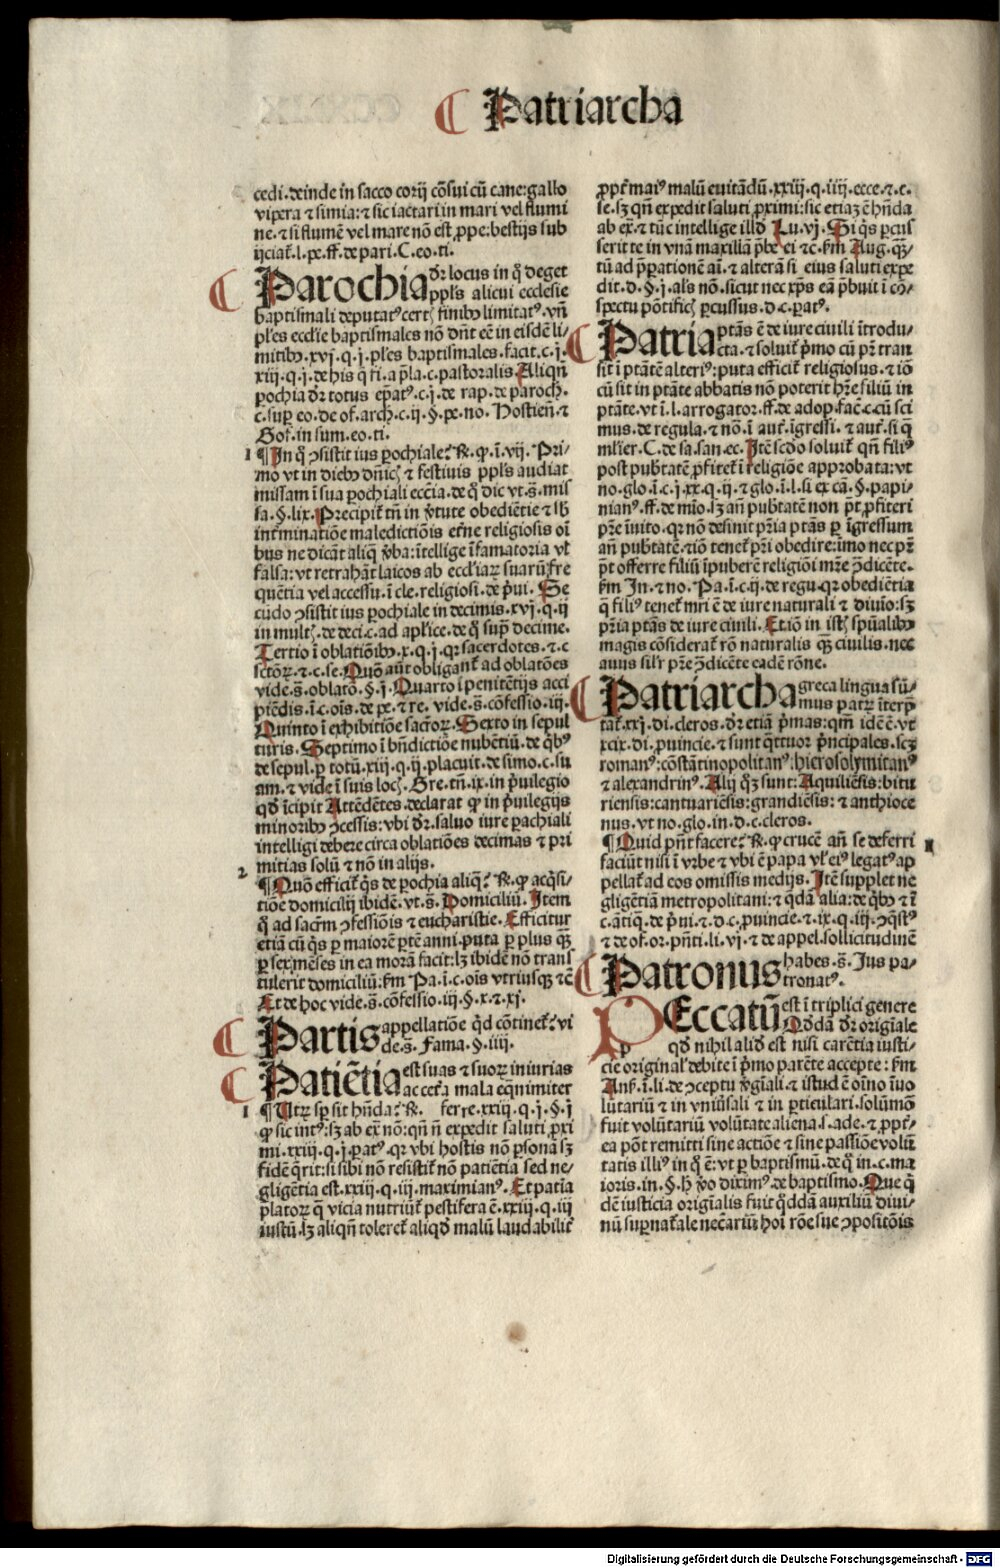 Patriarcha
cedi. deinde in sacco corij cōsui cū cane: gallo
vipera ⁊ simia: ⁊ sic iactari in mari vel flumi
ne. ⁊ si flumē vel mare nō est ꝓpe: bestijs sub
ijciat̄. l. pe. ff. de pari. C. eo. ti.
Parochia dr̄ locus in q̊ deget
ppl's alicui ecclesie
baptismali deputatꝰ certꝭ finibꝰ limitatꝰ. vn̄
pl'es eccl'ie baptismales nō dn̄t eē in eisdē li-
mitibꝰ. xvj. q. j. pl'es baptismales. facit. c. j.
xiij. q. j. de his q̄ fi. a p̄la. c. pastoralis. Aliqn̄
ꝑochia dr̄ totus ep̄atꝰ. c. j. de rap. de paroch.
c. suꝑ eo. de of. arch. c. ij. §. pe. no. Hostien̄. ⁊
Gof. in sum. eo. ti.
1 ¶ In q̊ ↄsistit ius ꝑochiale? R̄. ꝙ. ī. vij. Pri-
mo vt in diebꝰ dn̄icꝭ ⁊ festiuis ppl's audiat
missam ī sua ꝑochiali ecc̄ia. de q̊ dic vt. s̄. mis
sa. §. lix. Precipit̄ tn̄ in v̓tute obediētie ⁊ sb̄
int̓minatiōe maledictiōis et̓ne religiosis oī
bus ne dicāt aliq̄ v̓ba: ītellige īfamatoria vl'
falsa: vt retrahāt laicos ab eccl'iaꝝ suarū fre
quētia vel accessu. ī cle. religiosi. de p̓ui. Se
cūdo ↄsistit ius ꝑochiale in decimis. xvj. q. ij
in multꝭ. de deci. c. ad apl'ice. de q̊ supͣ decime.
Tertio ī oblatiōibꝰ. x. q. j. qꝛ sacerdotes. ⁊ c
sctōꝝ. ⁊ c. se. Quō aūt obligant̄ ad oblatōes
vide. s̄. oblatō. §. j. Quarto ī penitētijs acci
piēdis. ī. c. oīs. de pe. ⁊ re. vide. s̄. cōfessio. iij.
Quinto ī exhibitiōe sacr̄oꝝ. Sexto in sepul
turis. Septimo ī bn̄dictiōe nubētiū. de q̓bꝰ
de sepul. ꝑ totū. xiij. q. ij. placuit. de simo. c. su
am. ⁊ vide ī suis locꝭ. Gre. tn̄. ix. in p̓uilegio
qd̄ īcipit Attēdētes. declarat ꝙ in p̓uilegijs
minoribꝰ ↄcessis: vbi dr̄. saluo iure ꝑachiali
intelligi debere circa oblatiōes decimas ⁊ pri
mitias solū ⁊ nō in alijs.
2 ¶ Quō efficit̄ q̓s de ꝑochia aliq̄? R̄. ꝙ acq̓si-
tiōe domicilij ibidē. vt. s̄. Domiciliū. Item
q̊ ad sacr̄m ↄfessiōis ⁊ eucharistie. Efficitur
etiā cū q̓s ꝑ maiorē ꝑtē anni. puta ꝑ plus qͣꝫ
ꝑ sex mēses in ea morā facit: lꝫ ibidē nō trans
tulerit domiciliū: fm̄ Pa. ī. c. oīs vtriusqꝫ ⁊c̄
Et de hoc vide. s̄. cōfessio. iij. §. x. ⁊. xj.
Partis appellatiōe qͥd cōtinet̄? vi
de. s̄. Fama. §. iiij.
Patiētia est suas ⁊ suoꝝ iniurias
ac cet̓a mala eqͣnimiter
1 ¶ Utꝝ sp̄ sit hn̄da? R̄. ferre. xxiij. q. j. §. j
ꝙ sic intꝰ: sꝫ ab ex̄ nō: qn̄ n̄ expedit saluti ꝓxi
mi. xxiij. q. j. patꝰ. qꝛ vbi hostis nō ꝑsonā sꝫ
fidē q̄rit: si sibi nō resistit̄ nō patiētia sed ne-
gligētia est. xxiij. q. iij. maximianꝰ. Et patiā
p̄latoꝝ q̄ vicia nutriūt̄ pestifera ē. xxiij. q. iij
iustū. lꝫ aliqn̄ toleret̄ aliqd̄ malū laudabilit̓
ꝓpt̓ maiꝰ malū euitādū. xxiij. q. iiij. ecce. ⁊. c.
se. sꝫ qn̄ expedit saluti ꝓximi: sic etiaꝫ ē hn̄da
ab ex̄. ⁊ tūc intellige illd̄ Lu. vj. Si q̓s ꝑcus
serit te in vnā maxillā p̄be ei ⁊c. fm̄ Aug. qͣꝫ-
tū ad p̄ꝑationē ai. ⁊ alterā si eius saluti expe
dit. d. §. j. al's nō. sicut nec xp̄s eā p̄buit ī cō-
spectu pōtificꝭ ꝑcussus. d. c. patꝰ.
Patria ptās ē de iure ciuili ītrodu-
cta. ⁊ soluit̄ p̓mo cū pr̄ tran
sit ī ptātē alteriꝰ: puta efficit̄ religiosus. ⁊ iō
cū sit in ptāte abbatis nō poterit hr̄e filiū in
ptāte. vt ī. l. arrogator. ff. de adop. fac̄. c. cū sci
mus. de regula. ⁊ nō. ī aut̄. īgressi. ⁊ aut̄. si q̄
ml'ier. C. de sa. san. ec. Itē scdo soluit̄ qn̄ filiꝰ
post pubtatē ꝓfitet̄ ī religiōe approbata: vt
no. glo. ī. c. j. xx. q. ij. ⁊ glo. ī. l. si ex cā. §. papi-
nianꝰ. ff. de mīo. sꝫ an̄ pubtatē non pōt ꝓfiteri
pr̄e īuito. qꝛ nō desinit pr̄ia ptās ꝑ īgressum
an̄ pubtatē. ⁊ iō tenet̄ pr̄i obedire: imo nec pr̄
pōt offerre filiū īpuberē religiōi mr̄e ↄ̄dicēte.
fm̄ In. ⁊ no. Pa. ī. c. ij. de regu. qꝛ obediētia
q̄ filiꝰ tenet̄ mr̄i ē de iure naturali ⁊ diuīo: sꝫ
pr̄ia ptās de iure ciuili. Et iō in istꝭ spūalibꝰ
magis cōsiderat̄ rō naturalis qͣꝫ ciuilis. nec
auus sil'r pr̄e ↄ̄dicēte eadē rōne.
Patriarcha greca lingua sū-
mus patꝝ īterp̄
tat̄. xxj. di. cleros. dr̄ etiā p̓mas: qm̄ idē ē. vt
xcix. di. ꝓuincie. ⁊ sunt q̄ttuor p̓ncipales. scꝫ
romanꝰ: cōstātinopolitanꝰ: hierosolymitanꝰ
⁊ alexandrinꝰ. Alij qͦꝫ sunt: Aquiliēsis: bitu
riensis: cantuariēsis: grandiēsis: ⁊ anthioce
nus. vt no. glo. in. d. c. cleros.
¶ Quid pn̄t facere? R̄. ꝙ crucē an̄ se deferri
faciūt nisi ī vrbe ⁊ vbi ē papa vl' eiꝰ legatꝰ: ap
pellat̄ ad eos omissis medijs. Itē supplet ne
gligētiā metropolitani: ⁊ qͣdā alia: de q̓bꝰ ⁊ ī
c. ātiq̄. de p̓ui. ⁊. d. c. ꝓuincie. ⁊. ix. q. iij. ↄq̄stꝰ
⁊ de of. or. pn̄ti. li. vj. ⁊ de appel. sollicitudinē
Patronus habes. s̄. Jus pa-
tronatꝰ.
PEccatū est ī triplici genere
Qd̄dā dr̄ origīale
qd̄ nihil alid̄ est nisi carētia iusti-
cie original' debite ī p̓mo parēte accepte: fm̄
Ans. ī. li. de ↄceptu v̓gīali. ⁊ istud ē oīno īuo
lūtariū ⁊ in vniūsali ⁊ in ꝑticulari. solūmō
fuit volūtariū volūtate aliena. s. ade. ⁊ ꝓpt̓-
ea pōt remitti sine actiōe ⁊ sine passiōe volū
tatis illiꝰ in q̊ ē: vt ꝑ baptismū. de q̊ in. c. ma
ioris. in. §. h̄ v̓o diximꝰ. de baptismo. Que q̓
dē iusticia origīalis fuit qd̄dā auxiliū diui-
nū suꝑnat̄ale necr̄iū hoi rōe sue ↄpositōis